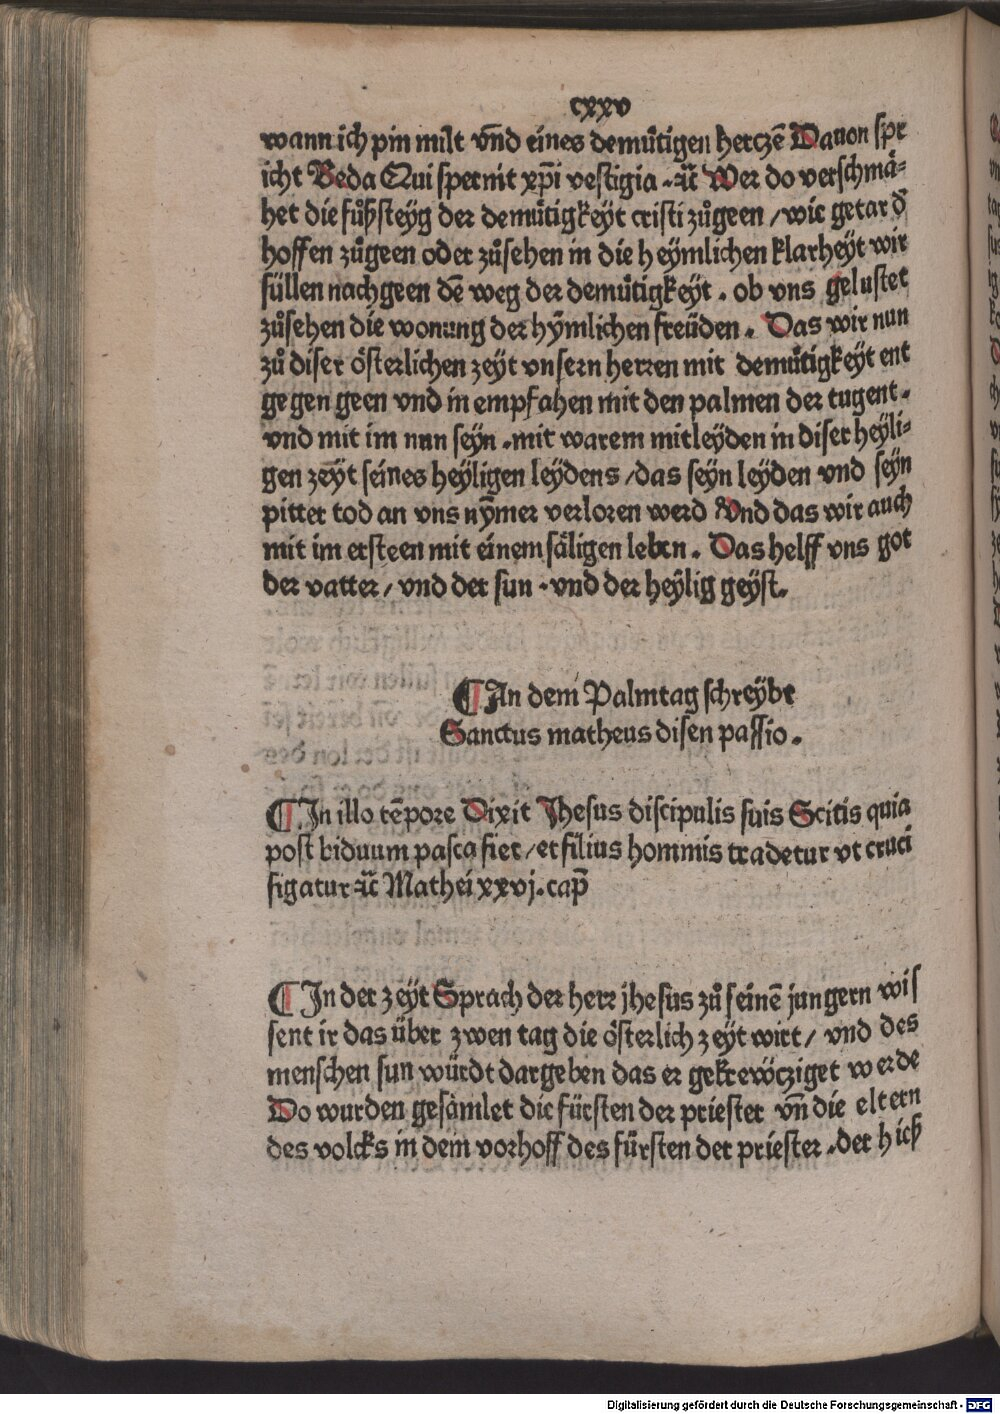 cxxv
wann ich pin milt vñd eines demuͤtigen hertzē Dauon spr
icht Beda Qui spernit xp̄i vestigia ⁊c̄ Wer do verschmaͤ⸗
het die fuͦßsteyg der demuͤtigkeyt cristi zuͦgeen / wie getar d̕
hoffen zuͦgeen oder zuͦsehen in die heÿmlichen klarheÿt wir
süllen nachgeen dē weg der demuͤtigkeyt . ob vns gelustet
zuͦsehen die wonung der hÿmlichen freüden . Das wir nun
zuͦ diser österlichen zeÿt vnsern herren mit demuͤtigkeyt ent
gegen geen vnd in empfahen mit den palmen der tugent .
vnd mit im nun seÿn . mit warem mitleÿden in diser heÿli⸗
gen zeÿt seines heÿligen leÿdens / das seÿn leÿden vnd seÿn
pitter tod an vns nÿmer verloren werd Vnd das wir auch
mit im ersteen mit einem säligen leben . Das helff vns got
der vatter / vnd der sun . vnd der heÿlig geÿst .
¶ An dem Palmtag schreÿbt
Sanctus matheus disen passio .
¶ In illo tēpore Dixit Jhesus discipulis suis Scitis quia
post biduum pasca fiet / et filius hominis tradetur vt cruci
figatur ⁊c̄ Mathei xxvj . cap̄
¶ In der zeÿt Sprach der herr jhesus zuͦ seinē jungern wis
sent ir das über zwen tag die österlich zeÿt wirt / vnd des
menschen sun würdt dargeben das er gekrewͤcziget werde
Do wurden gesàmlet die fürsten der priester vn̄ die eltern
des volcks in dem vorhoff des fürsten der priester . der hieß
Digitalisierung gefördert durch die Deutsche Forschungsgemeinschaft - DFG